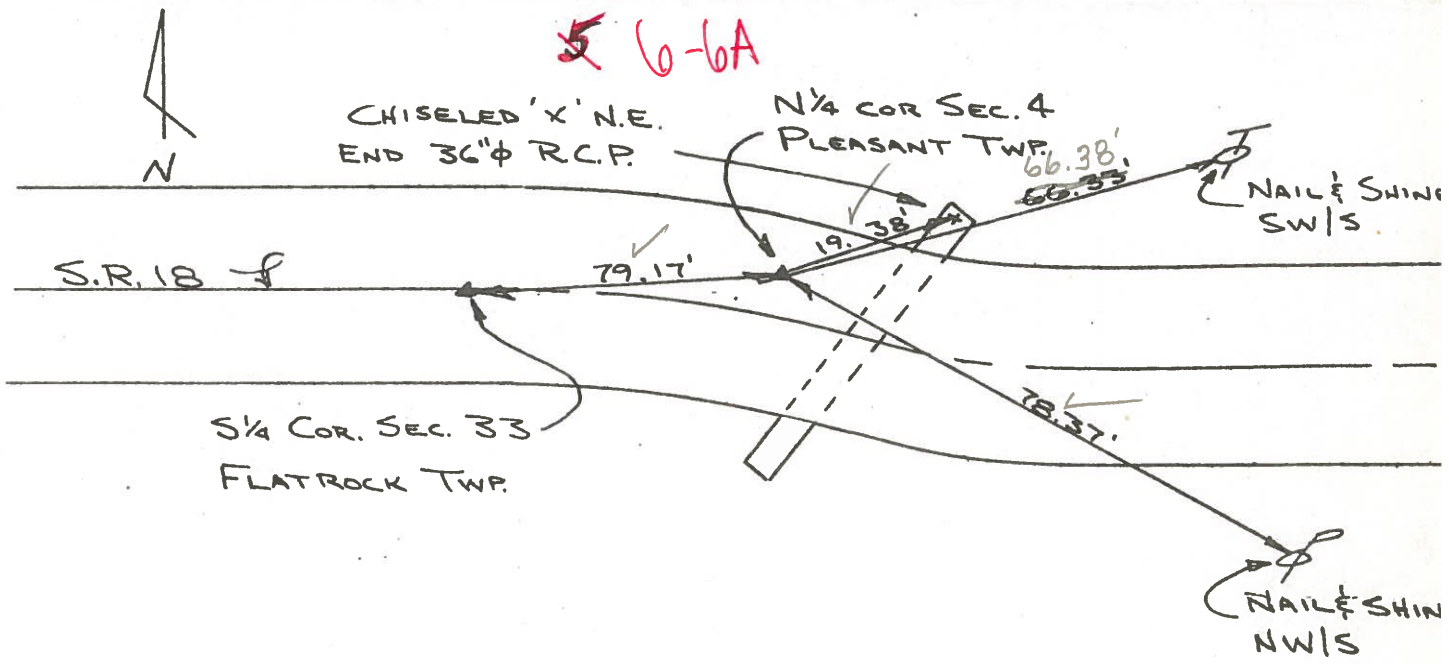 5 6-6A
CHISELED 'X' N.E.
END 36"ϕ R.C.P.
N¼ COR SEC. 4
PLEASANT TWP.
N
66.38'
66.33'
NAIL & SHINE
SW/S
19.38'
79.17'
S.R. 18
78.37'
S¼ COR. SEC. 33
FLATROCK TWP.
NAIL & SHIN
NW/S